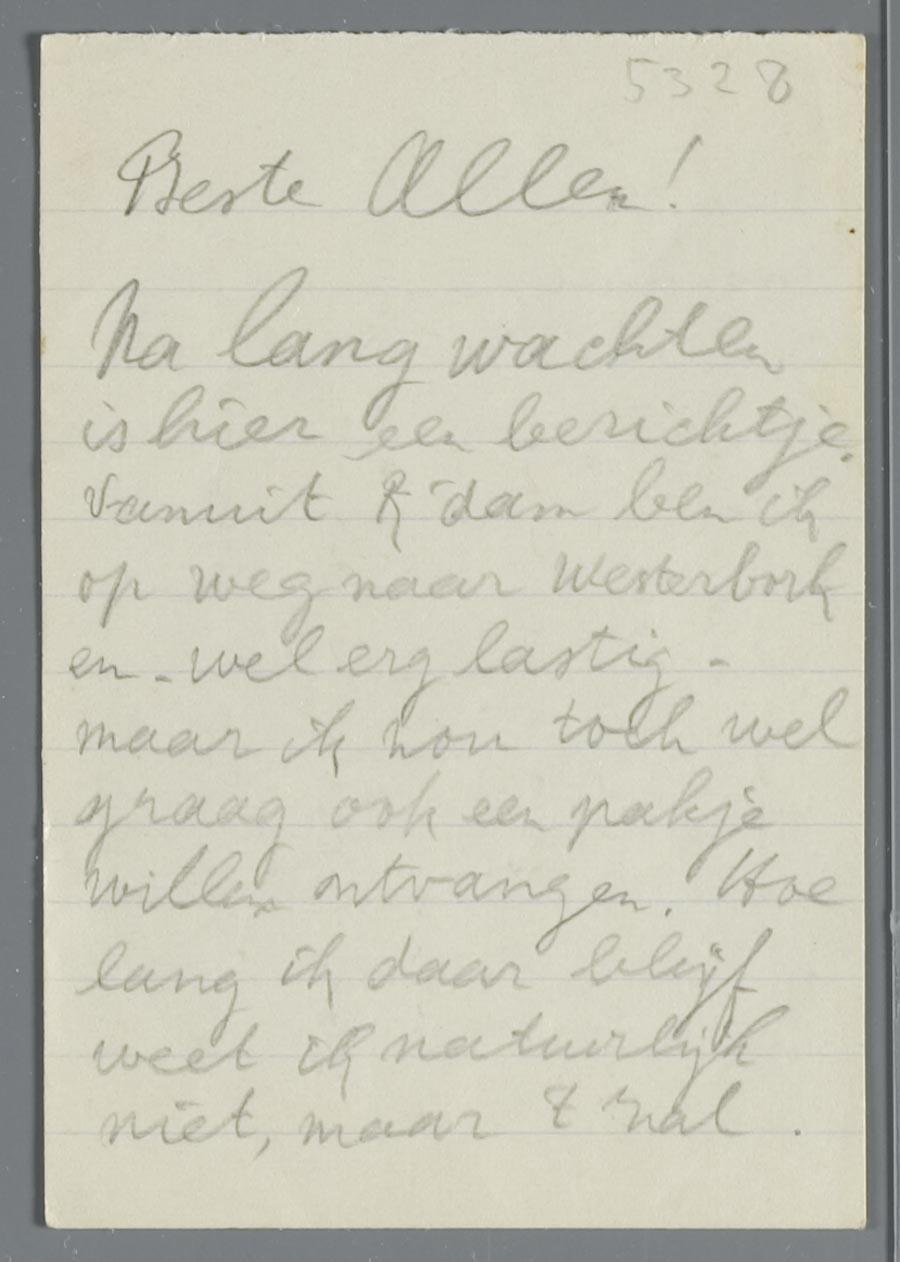 5328
Beste Allen!
Na lang wachten
is hier een berichtje.
Vanuit R'dam ben ik
op weg naar Westerbork
en - wel erg lastig -
maar ik zou toch wel
graag ook een pakje
willen ontvangen. Hoe
lang ik daar blijf
weet ik natuurlijk
niet, maar 't zal .